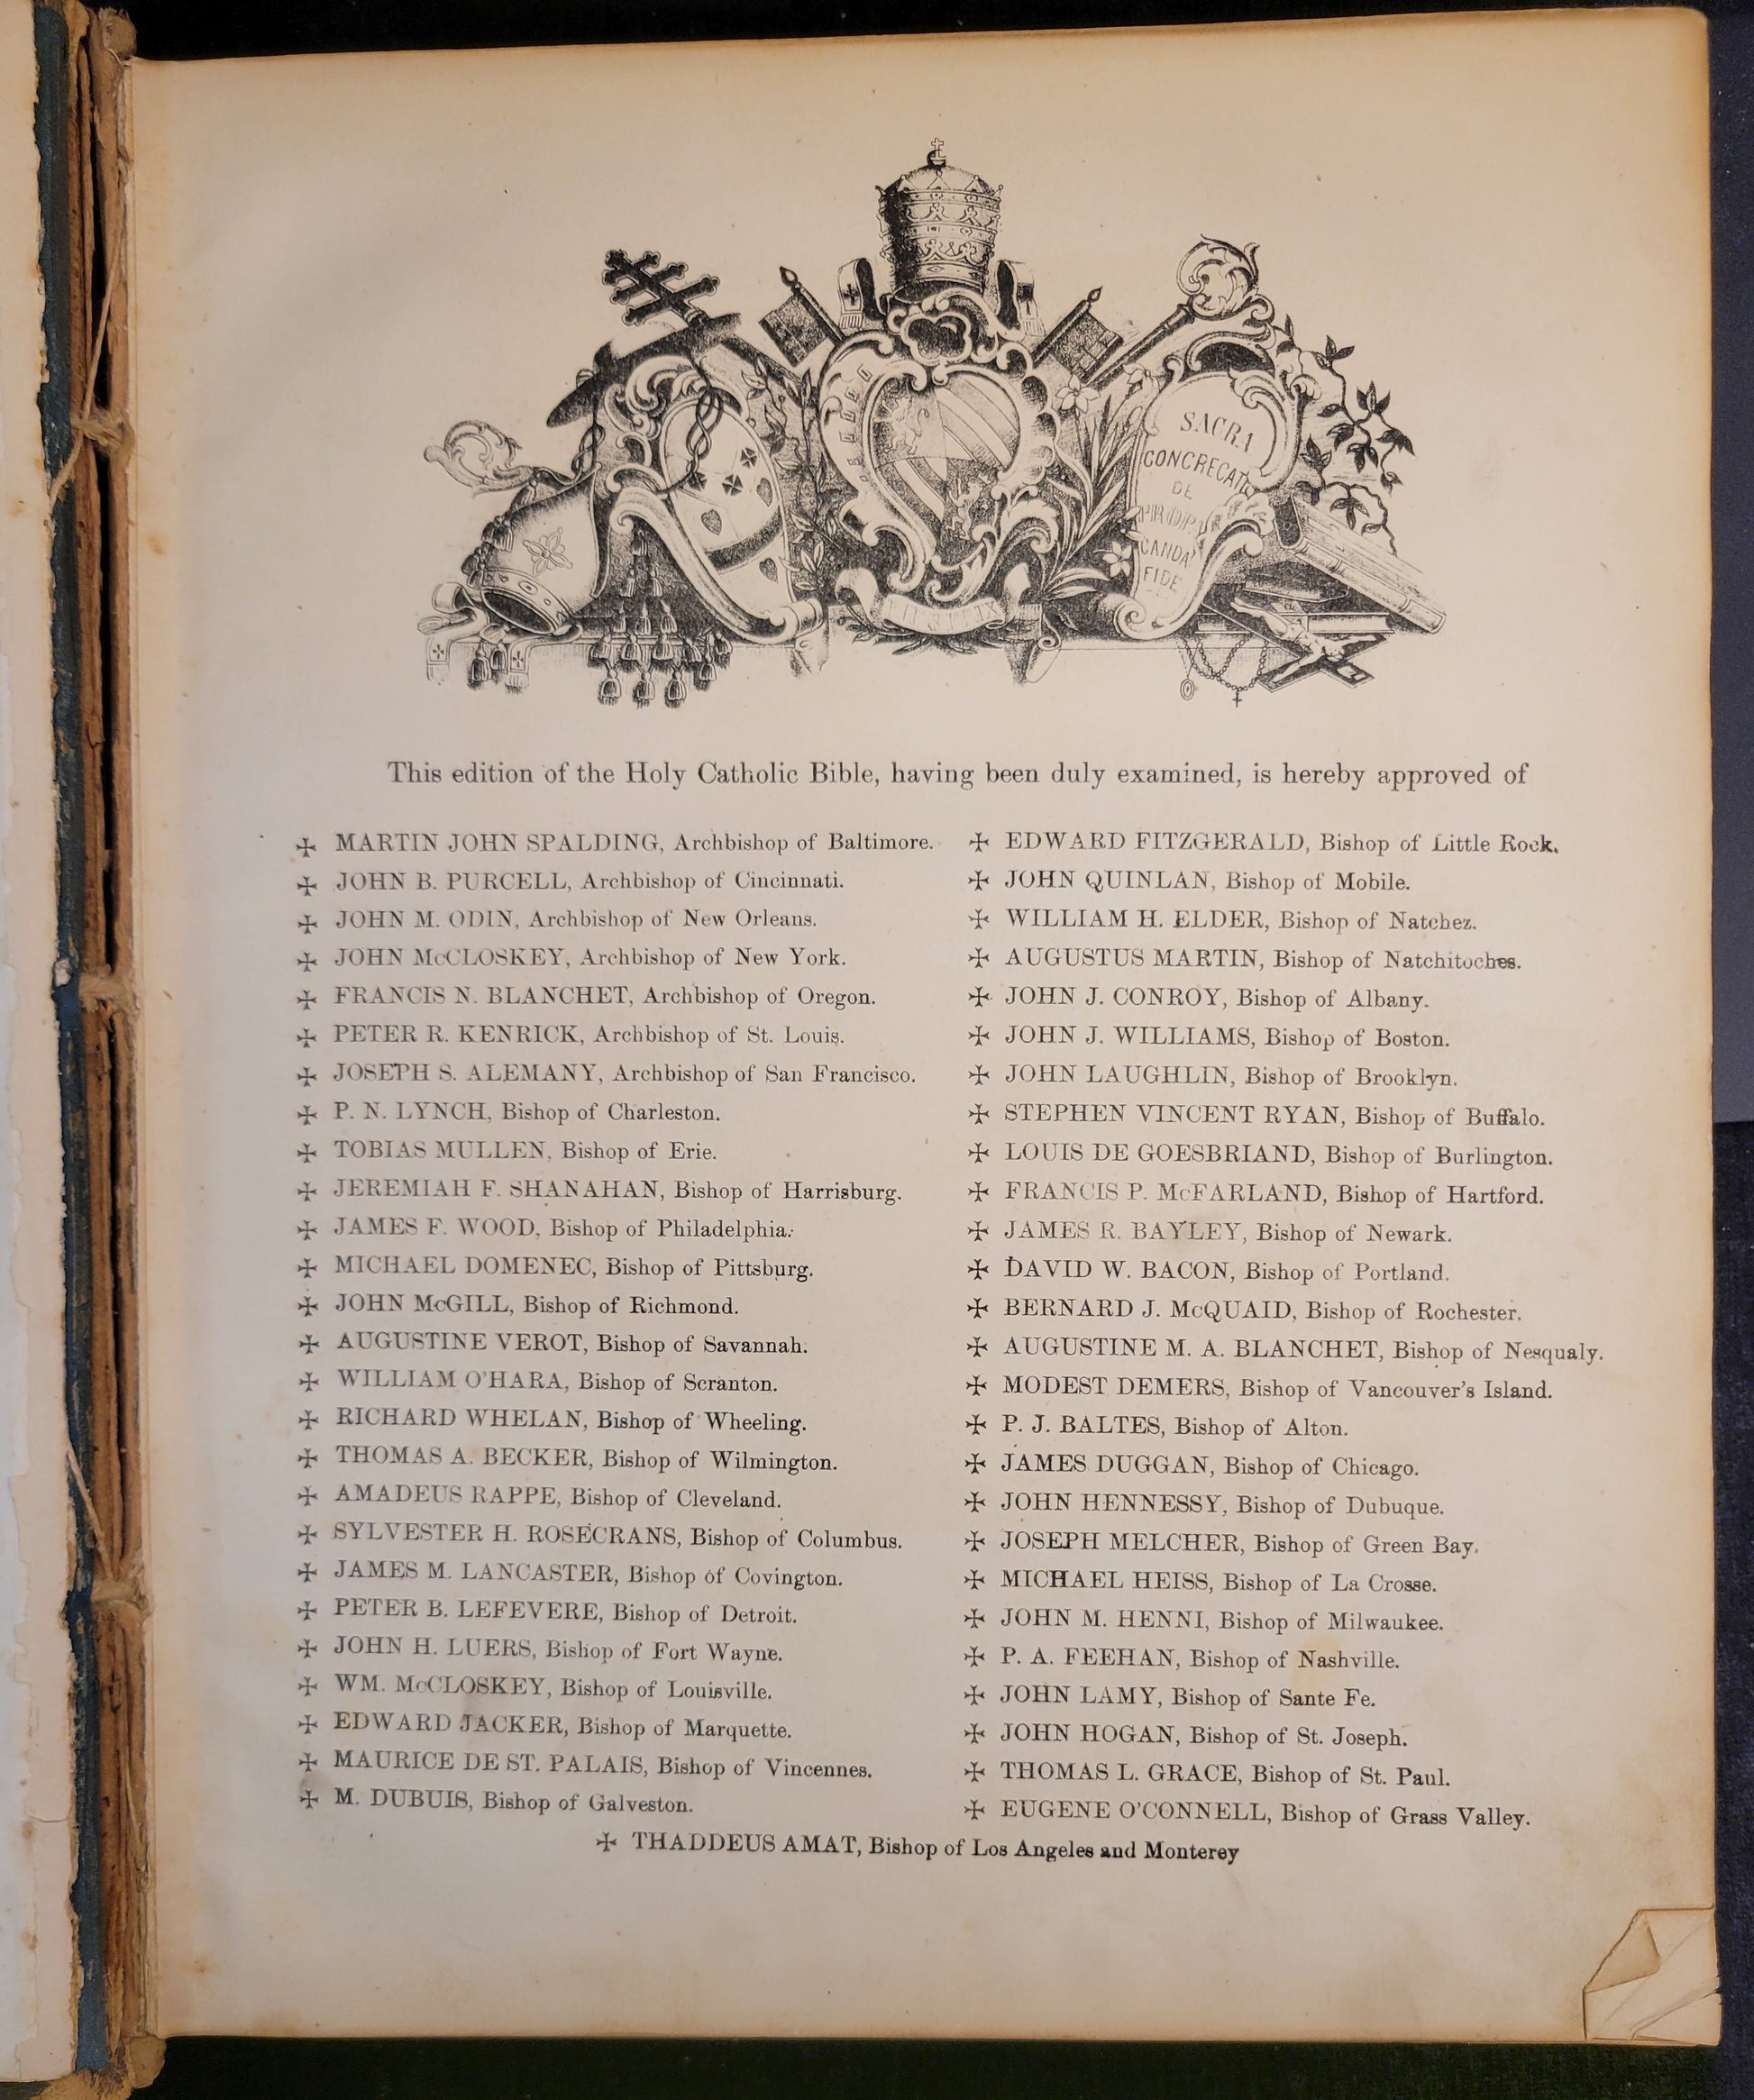 SACRA
CONGREGATIO
DE
PROPA
GANDA
FIDE
PIUS IX
This edition of the Holy Catholic Bible, having been duly examined, is hereby approved of
✠ MARTIN JOHN SPALDING, Archbishop of Baltimore.
✠ JOHN B. PURCELL, Archbishop of Cincinnati.
✠ JOHN M. ODIN, Archbishop of New Orleans.
✠ JOHN McCLOSKEY, Archbishop of New York.
✠ FRANCIS N. BLANCHET, Archbishop of Oregon.
✠ PETER R. KENRICK, Archbishop of St. Louis.
✠ JOSEPH S. ALEMANY, Archbishop of San Francisco.
✠ P. N. LYNCH, Bishop of Charleston.
✠ TOBIAS MULLEN, Bishop of Erie.
✠ JEREMIAH F. SHANAHAN, Bishop of Harrisburg.
✠ JAMES F. WOOD, Bishop of Philadelphia.
✠ MICHAEL DOMENEC, Bishop of Pittsburg.
✠ JOHN McGILL, Bishop of Richmond.
✠ AUGUSTINE VEROT, Bishop of Savannah.
✠ WILLIAM O'HARA, Bishop of Scranton.
✠ RICHARD WHELAN, Bishop of Wheeling.
✠ THOMAS A. BECKER, Bishop of Wilmington.
✠ AMADEUS RAPPE, Bishop of Cleveland.
✠ SYLVESTER H. ROSECRANS, Bishop of Columbus.
✠ JAMES M. LANCASTER, Bishop of Covington.
✠ PETER B. LEFEVERE, Bishop of Detroit.
✠ JOHN H. LUERS, Bishop of Fort Wayne.
✠ WM. McCLOSKEY, Bishop of Louisville.
✠ EDWARD JACKER, Bishop of Marquette.
✠ MAURICE DE ST. PALAIS, Bishop of Vincennes.
✠ M. DUBUIS, Bishop of Galveston.
✠ EDWARD FITZGERALD, Bishop of Little Rock.
✠ JOHN QUINLAN, Bishop of Mobile.
✠ WILLIAM H. ELDER, Bishop of Natchez.
✠ AUGUSTUS MARTIN, Bishop of Natchitoches.
✠ JOHN J. CONROY, Bishop of Albany.
✠ JOHN J. WILLIAMS, Bishop of Boston.
✠ JOHN LAUGHLIN, Bishop of Brooklyn.
✠ STEPHEN VINCENT RYAN, Bishop of Buffalo.
✠ LOUIS DE GOESBRIAND, Bishop of Burlington.
✠ FRANCIS P. McFARLAND, Bishop of Hartford.
✠ JAMES R. BAYLEY, Bishop of Newark.
✠ DAVID W. BACON, Bishop of Portland.
✠ BERNARD J. McQUAID, Bishop of Rochester.
✠ AUGUSTINE M. A. BLANCHET, Bishop of Nesqualy.
✠ MODEST DEMERS, Bishop of Vancouver's Island.
✠ P. J. BALTES, Bishop of Alton.
✠ JAMES DUGGAN, Bishop of Chicago.
✠ JOHN HENNESSY, Bishop of Dubuque.
✠ JOSEPH MELCHER, Bishop of Green Bay.
✠ MICHAEL HEISS, Bishop of La Crosse.
✠ JOHN M. HENNI, Bishop of Milwaukee.
✠ P. A. FEEHAN, Bishop of Nashville.
✠ JOHN LAMY, Bishop of Sante Fe.
✠ JOHN HOGAN, Bishop of St. Joseph.
✠ THOMAS L. GRACE, Bishop of St. Paul.
✠ EUGENE O'CONNELL, Bishop of Grass Valley.
✠ THADDEUS AMAT, Bishop of Los Angeles and Monterey